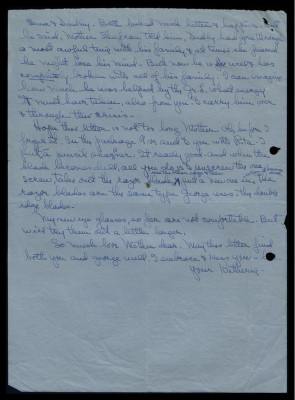 Anna & Dudley. Both looked much better & happier. And
he said, Mother
a most awful time with his family, & at times she feared
he might lose his mind. But now he is well & has
completely broken with all of his family. I can imagine
how much he was helped by the
it must have taken, also from you to carry him over
& through this crisis—
Hope this letter is not too long Mother. Oh, before I
forget it. In the package I
put a pencil sharpener. It really good - and when the
blade becomes dull, all you do is & unscrew the
screw, take out the razor blade, & put a new one in. The
razor blades are the same type George uses: the double
edge blades.
My new eye glasses, so far are not comfortable. But
will try them out a little longer.
So much love Mother dear. May this letter find
both you and George well. I embrace & kiss you—
Your Katherine